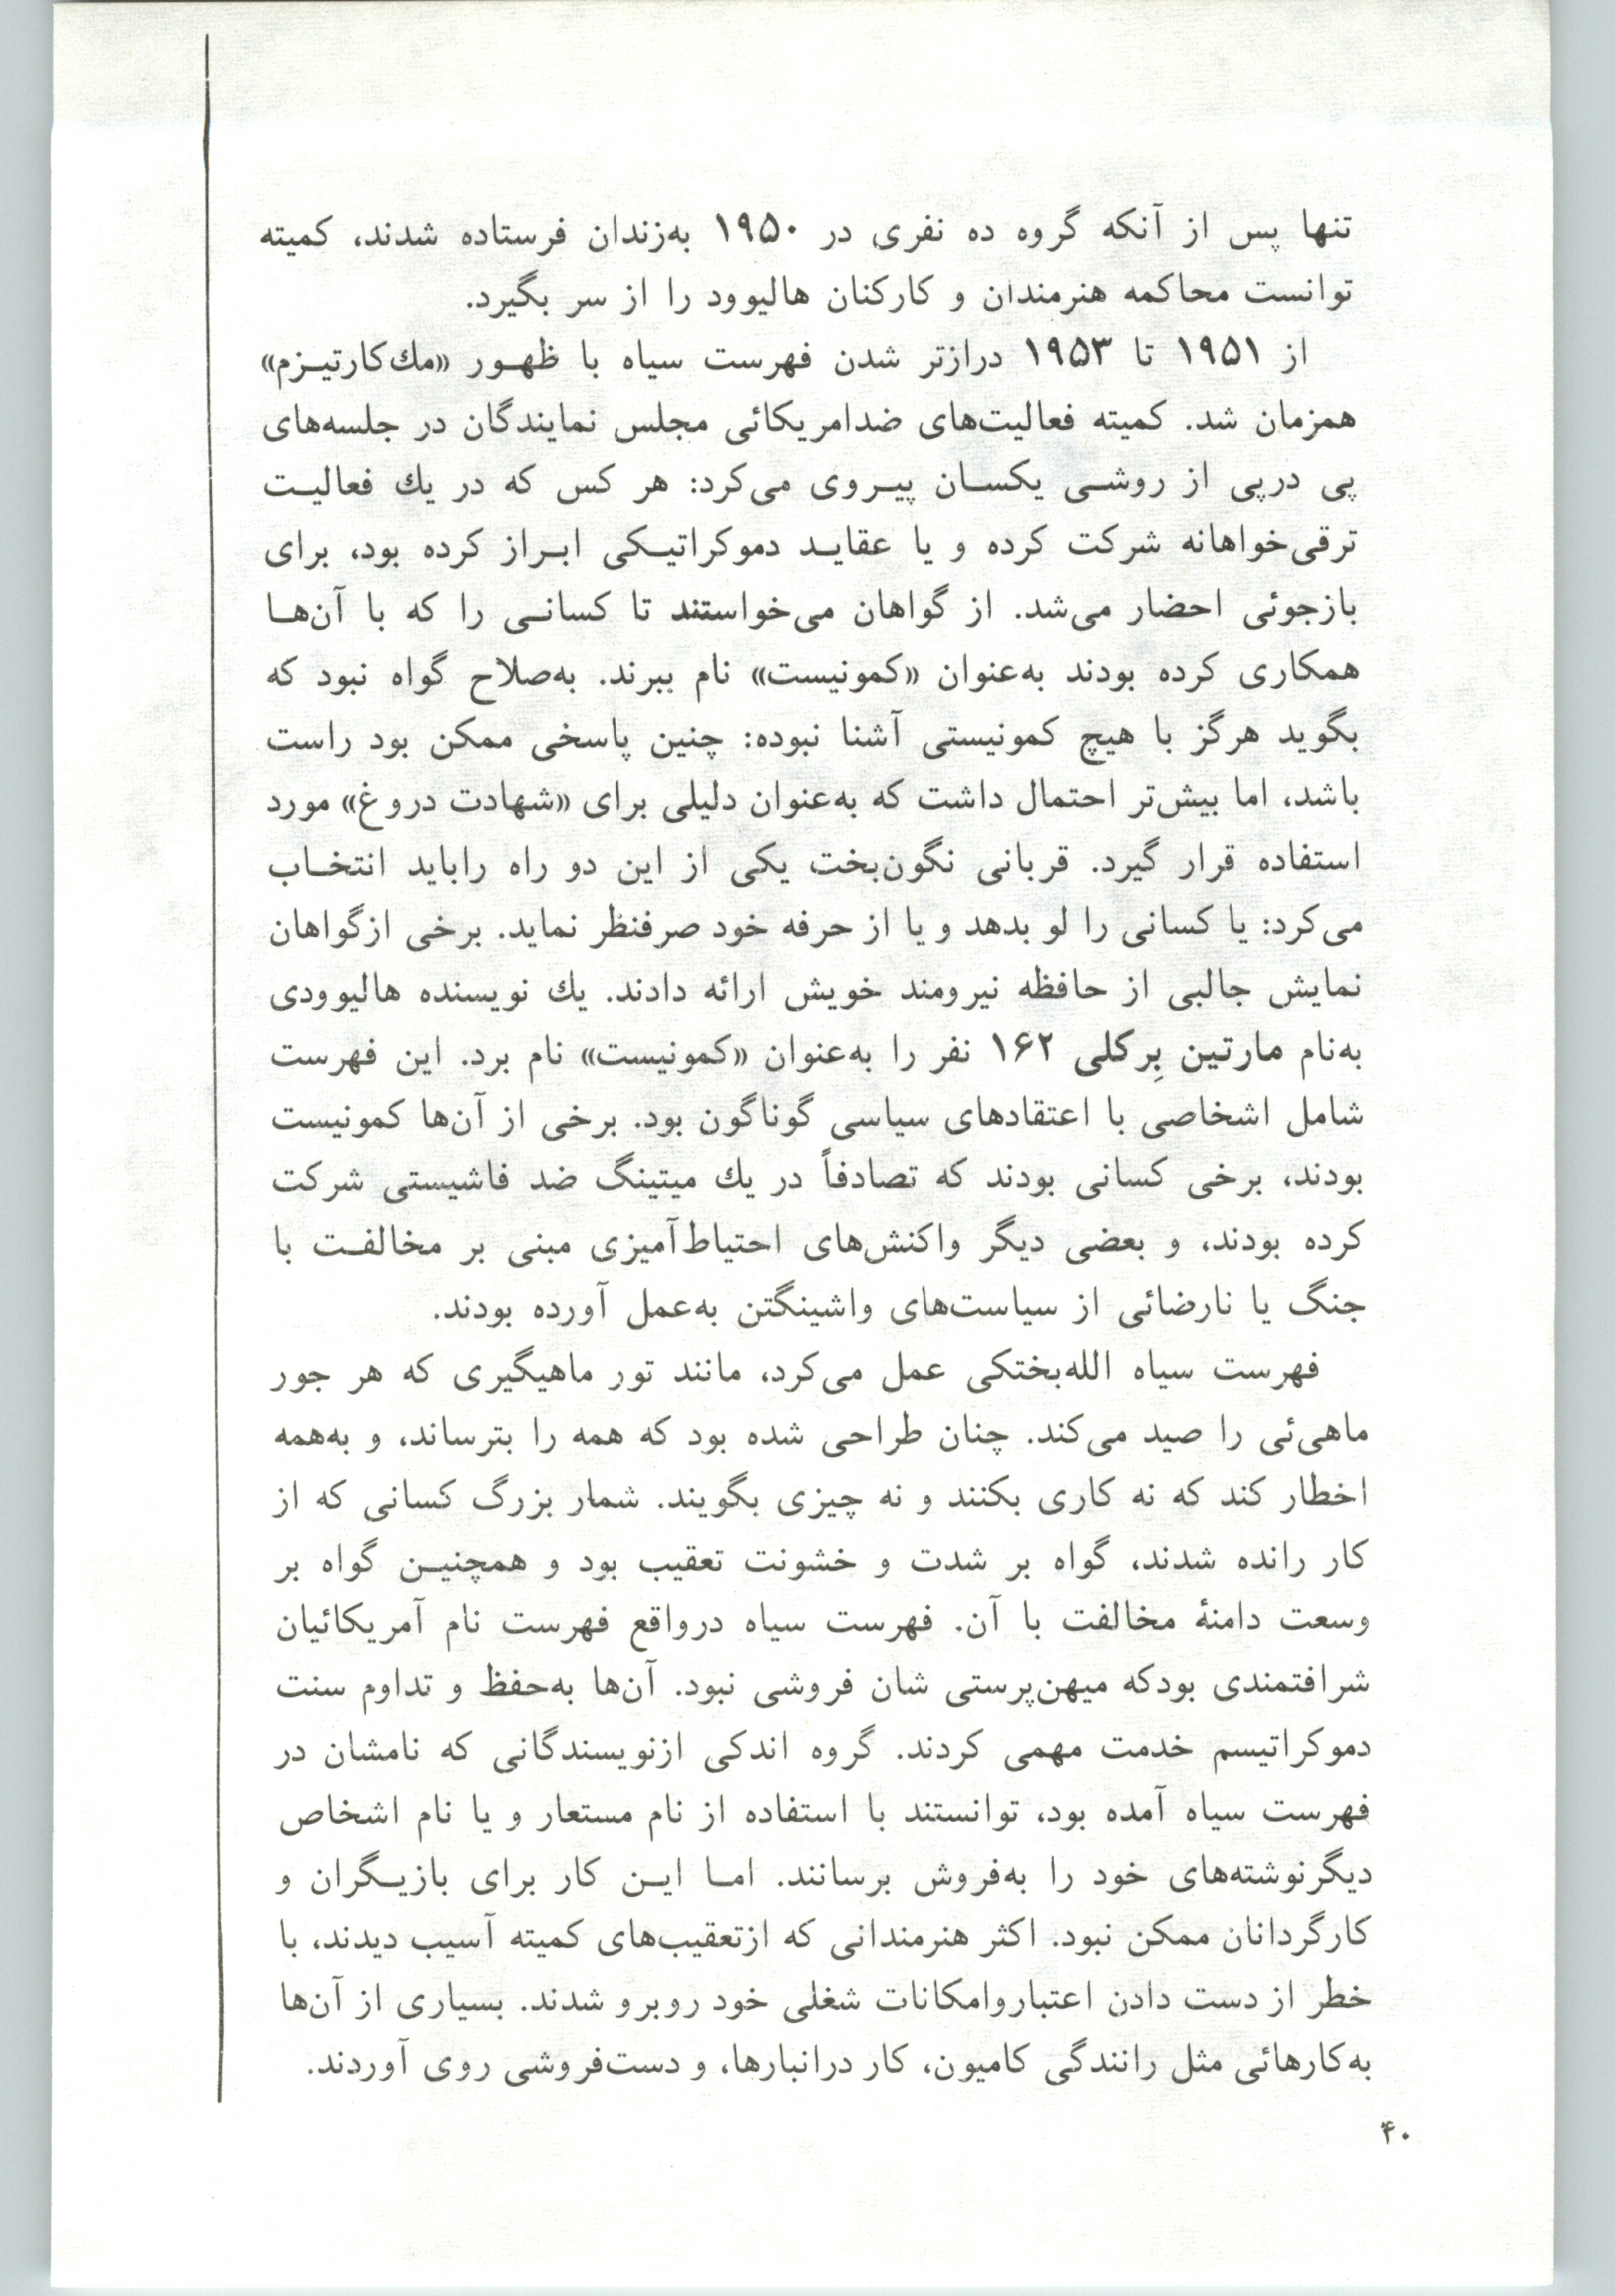 تنها پس از آنکه گروه ده نفری در ۱۹۵۰ به‌زندان فرستاده شدند، کمیته
توانست محاکمه هنرمندان و کارکنان هالیوود را از سر بگیرد.
از ۱۹۵۱ تا ۱۹۵۳ درازتر شدن فهرست سیاه با ظهـور «مك‌کارتیـزم»
همزمان شد. کمیته فعالیت‌های ضدامریکائی مجلس نمایندگان در جلسه‌های
پی درپی از روشـی یکسـان پیـروی می‌کرد: هر کس که در یك فعالیـت
ترقی‌خواهانه شرکت کرده و یا عقایـد دموکراتیـکی ابـراز کرده بود، برای
بازجوئی احضار می‌شد. از گواهان می‌خواستند تا کسانـی را که با آن‌هـا
همکاری کرده بودند به‌عنوان «کمونیست» نام ببرند. به‌صلاح گواه نبود که
بگوید هرگز با هیچ کمونیستی آشنا نبوده: چنین پاسخی ممکن بود راست
باشد، اما بیش‌تر احتمال داشت که به‌عنوان دلیلی برای «شهادت دروغ» مورد
استفاده قرار گیرد. قربانی نگون‌بخت یکی از این دو راه راباید انتخـاب
می‌کرد: یا کسانی را لو بدهد و یا از حرفه خود صرفنظر نماید. برخی ازگواهان
نمایش جالبی از حافظه نیرومند خویش ارائه دادند. یك نویسنده هالیوودی
به‌نام مارتین بِرکلی ۱۶۲ نفر را به‌عنوان «کمونیست» نام برد. این فهرست
شامل اشخاصی با اعتقادهای سیاسی گوناگون بود. برخی از آن‌ها کمونیست
بودند، برخی کسانی بودند که تصادفاً در یك میتینگ ضد فاشیستی شرکت
کرده بودند، و بعضی دیگر واکنش‌های احتیاط‌آمیزی مبنی بر مخالفـت با
جنگ یا نارضائی از سیاست‌های واشینگتن به‌عمل آورده بودند.
فهرست سیاه الله‌بختکی عمل می‌کرد، مانند تور ماهیگیری که هر جور
ماهی‌ئی را صید می‌کند. چنان طراحی شده بود که همه را بترساند، و به‌همه
اخطار کند که نه کاری بکنند و نه چیزی بگویند. شمار بزرگ کسانی که از
کار رانده شدند، گواه بر شدت و خشونت تعقیب بود و همچنیـن گواه بر
وسعت دامنۀ مخالفت با آن. فهرست سیاه درواقع فهرست نام آمریکائیان
شرافتمندی بودکه میهن‌پرستی شان فروشی نبود. آن‌ها به‌حفظ و تداوم سنت
دموکراتیسم خدمت مهمی کردند. گروه اندکی ازنویسندگانی که نامشان در
فهرست سیاه آمده بود، توانستند با استفاده از نام مستعار و یا نام اشخاص
دیگرنوشته‌های خود را به‌فروش برسانند. امـا ایـن کار برای بازیـگران و
کارگردانان ممکن نبود. اکثر هنرمندانی که ازتعقیب‌های کمیته آسیب دیدند، با
خطر از دست دادن اعتباروامکانات شغلی خود روبرو شدند. بسیاری از آن‌ها
به‌کارهائی مثل رانندگی کامیون، کار درانبارها، و دست‌فروشی روی آوردند.
۴۰